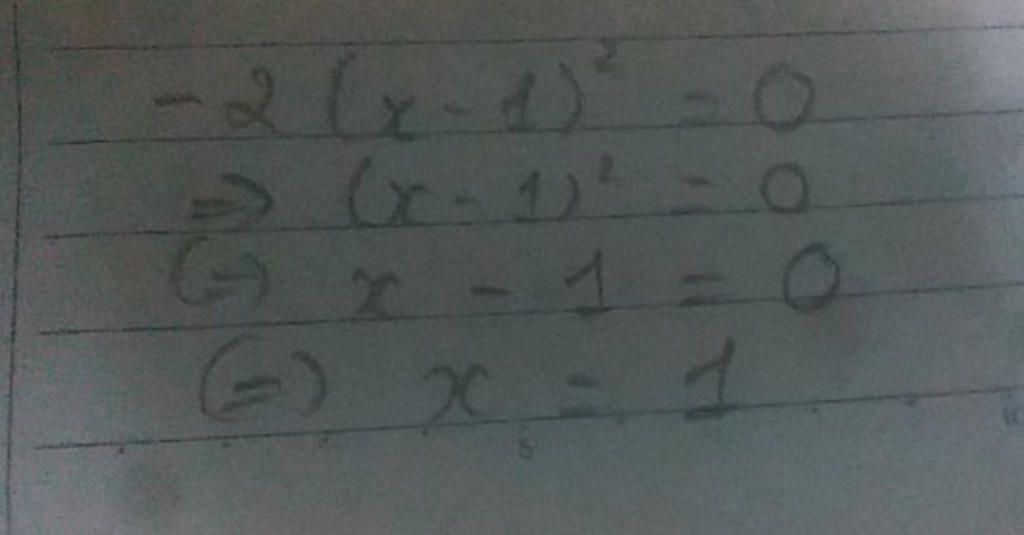 -2(x-1)² = 0
=> (x-1)² = 0
(=) x - 1 = 0
(=) x = 1